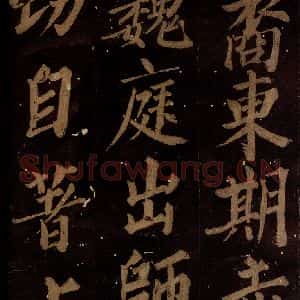 裔東期
魏庭出師
自著
Shufawang.CN